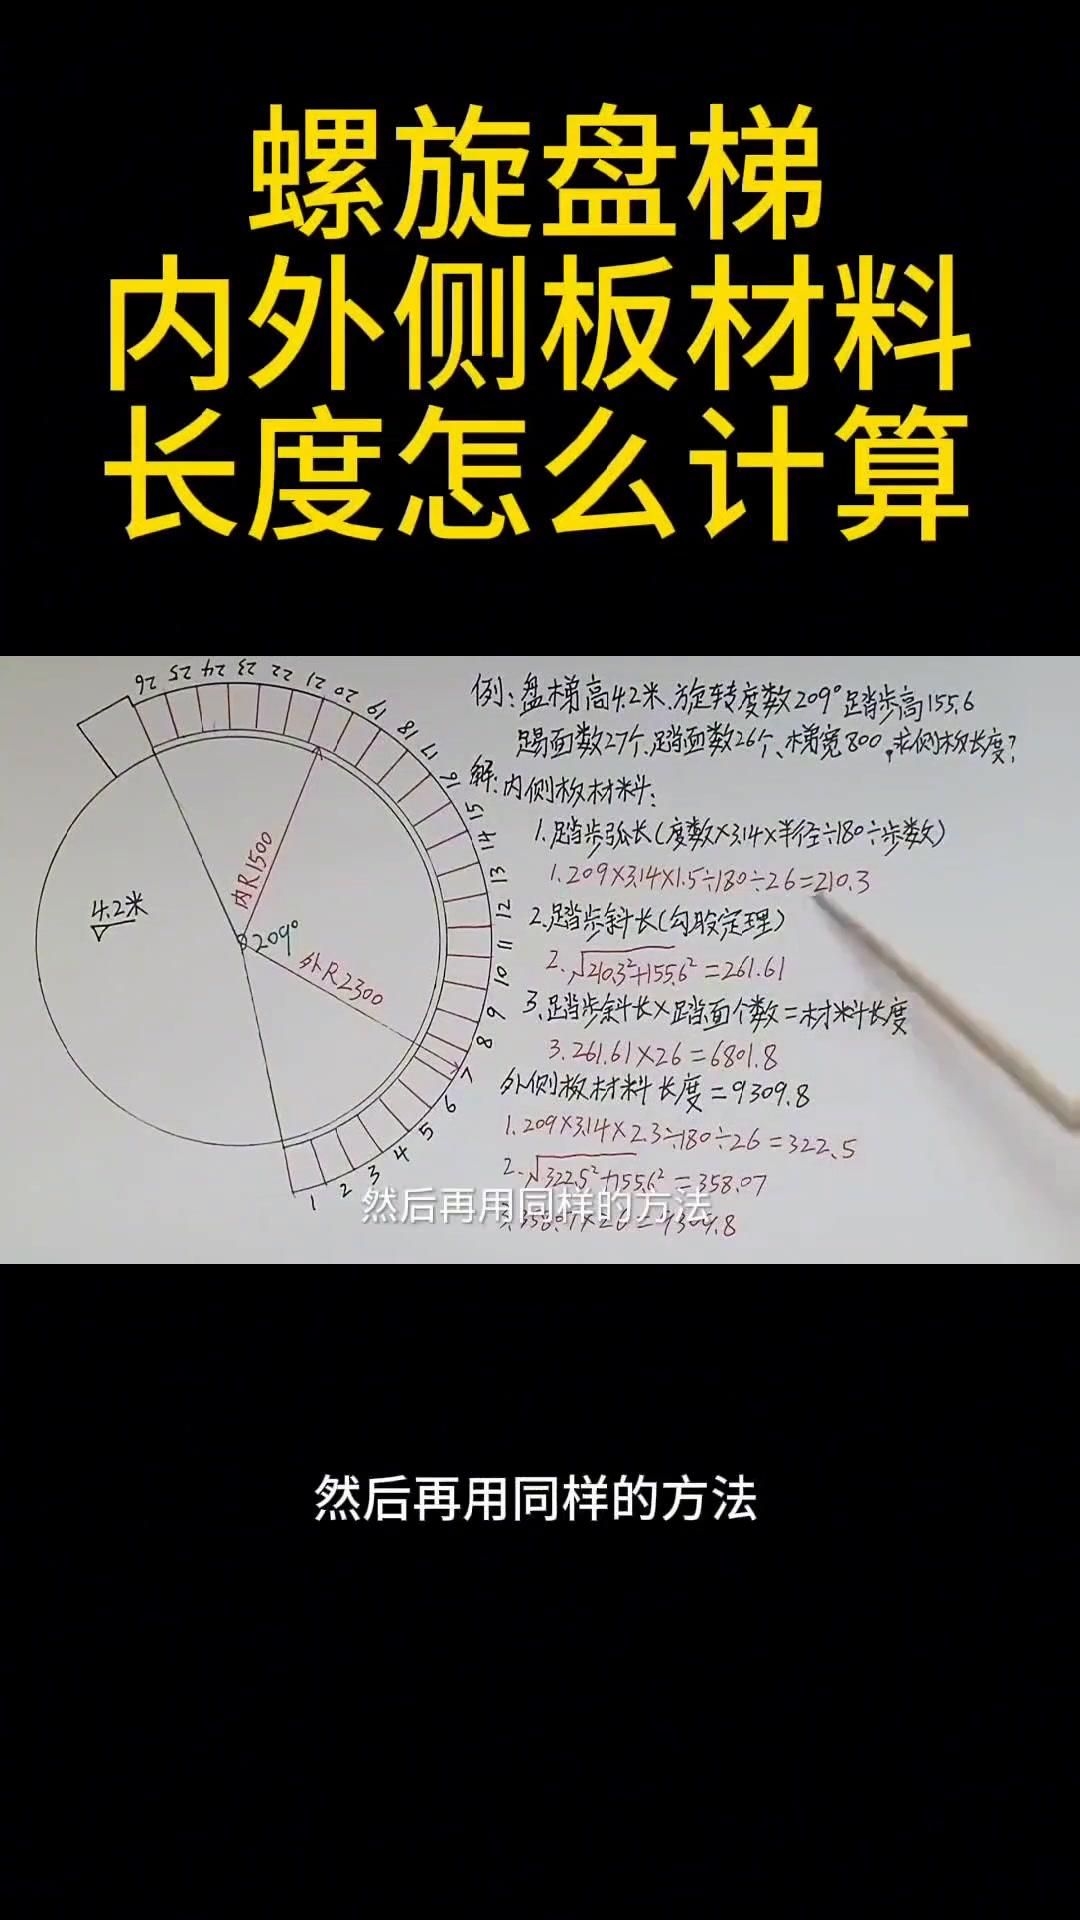 螺旋盘梯
内外侧板材料
长度怎么计算
26 25 24 23 22 21 20 19 18 17 16 15 14 13 12 11 10 9 8 7 6 5 4 3 2 1
4.2米
内R1500
209°
外R2300
例:盘梯高4.2米.旋转度数209°踏步高155.6
踢面数27个.踏面数26个、梯宽800,求侧板长度?
解:内侧板材料:
1.踏步弧长(度数×3.14×半径÷180÷步数)
1.209×3.14×1.5÷180÷26=210.3
2.踏步斜长(勾股定理)
2.√210.3²+155.6² =261.61
3.踏步斜长×踏面个数=材料长度
3.261.61×26=6801.8
外侧板材料长度=9309.8
1.209×3.14×2.3÷180÷26=322.5
2.√322.5²+155.6² =358.07
3.358.07×26=9309.8
然后再用同样的方法
然后再用同样的方法